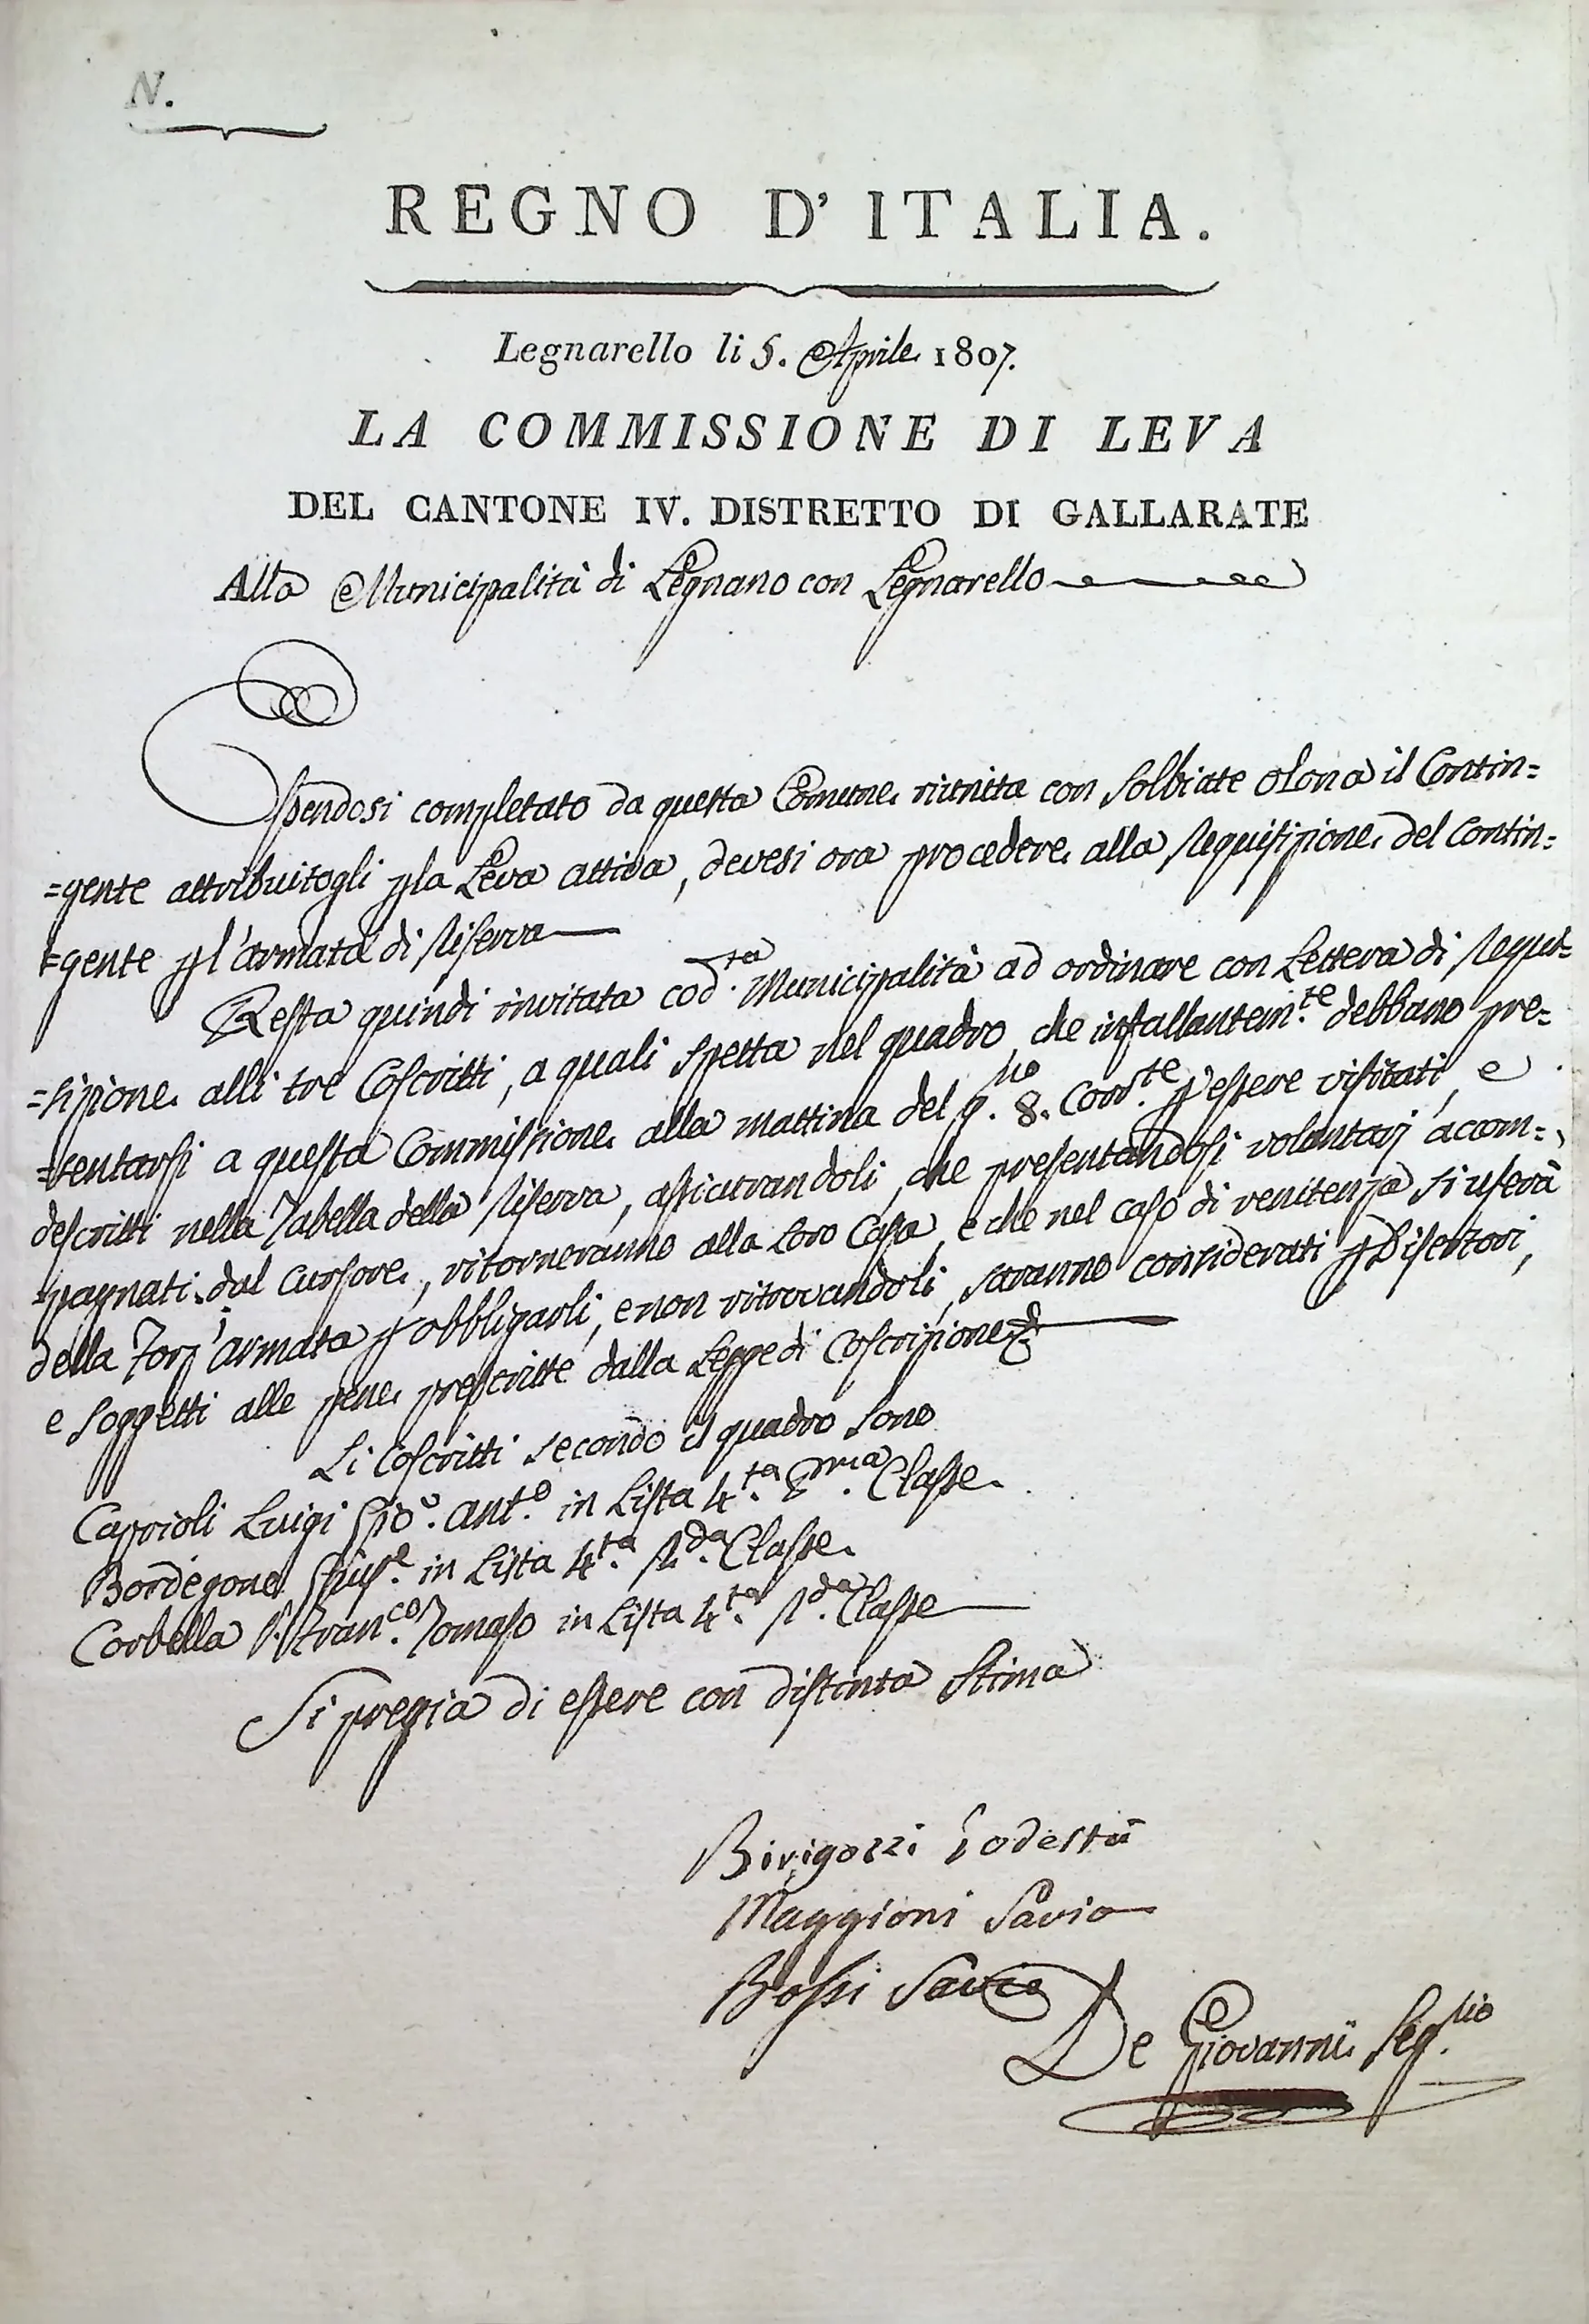 N.
REGNO D'ITALIA.
Legnarello li 5. Aprile 1807.
LA COMMISSIONE DI LEVA
DEL CANTONE IV. DISTRETTO DI GALLARATE
Alla Municipalità di Legnano con Legnarello
Essendosi completato da questa Comune riunita con Solbiate olona il Contin=
=gente attribuitogli p la Leva attiva, devesi ora procedere alla Requisizione del Contin=
=gente p l'armata di Riserva
Resta quindi invitata cod.ta Municipalità ad ordinare con Lettera di Requi=
=sizione alli tre Coscritti, a quali spetta nel quadro, che infallantem.te debbano pre=
=sentarsi a questa Commissione alla mattina del g.no 8. Corr.te p essere visitati, e
descritti nella Tabella della Riserva, assicurandoli, che presentandosi volontarj accom=
=pagnati dal Cursore, ritorneranno alla Loro Casa, e che nel caso di renitenza si userà
della Forz'armata p obbligarli, e non ritrovandoli, saranno considerati p Disertori,
e soggetti alle pene prescritte dalla Legge di Coscrizione
Li Coscritti secondo il quadro sono
Caprioli Luigi Gio. Ant.o in Lista 4.ta P.ma Classe.
Bordegone Gius.e in Lista 4.ta 2.da Classe.
Corbella Fran.co Tomaso in Lista 4.ta 2.da Classe
Si pregia di essere con distinta Stima
Birigozzi Podestà
Maggioni Savio
Bossi Savio
De Giovanni Seg.rio